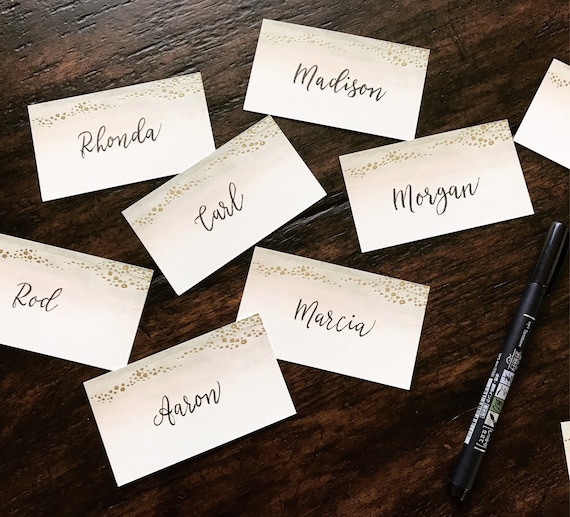 Madison
Rhonda
Carl
Morgan
Rod
Marcia
Aaron